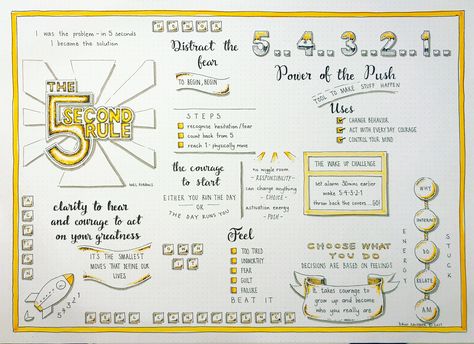 I was the problem - in 5 seconds
I became the solution
THE
5 SECOND
RULE
MEL ROBBINS
clarity to hear
and courage to act
on your greatness
IT'S THE SMALLEST
MOVES THAT DEFINE OUR
LIVES
5 4 3 2 1
Distract the
fear
TO BEGIN, BEGIN
STEPS
recognise hesitation/fear
count back from 5
reach 1 - physically move
the courage
to start
EITHER YOU RUN THE DAY
OR
THE DAY RUNS YOU
Feel
TOO TIRED
UNWORTHY
FEAR
GUILT
FAILURE
BEAT IT
5..4..3..2..1..
Power of the Push
TOOL TO MAKE STUFF HAPPEN
Uses
CHANGE BEHAVIOR
ACT WITH EVERYDAY COURAGE
CONTROL YOUR MIND
no wiggle room
- RESPONSIBILITY -
can change anything
- CHOICE -
activation energy
- PUSH -
THE WAKE UP CHALLENGE
set alarm 30mins earlier
wake 5-4-3-2-1
throw back the covers....GO!
CHOOSE WHAT
YOU DO
DECISIONS ARE BASED ON FEELINGS
It takes courage to
grow up and become
who you really are
ENERGY
STUCK
WHY
INTERACT
DO
RELATE
AM